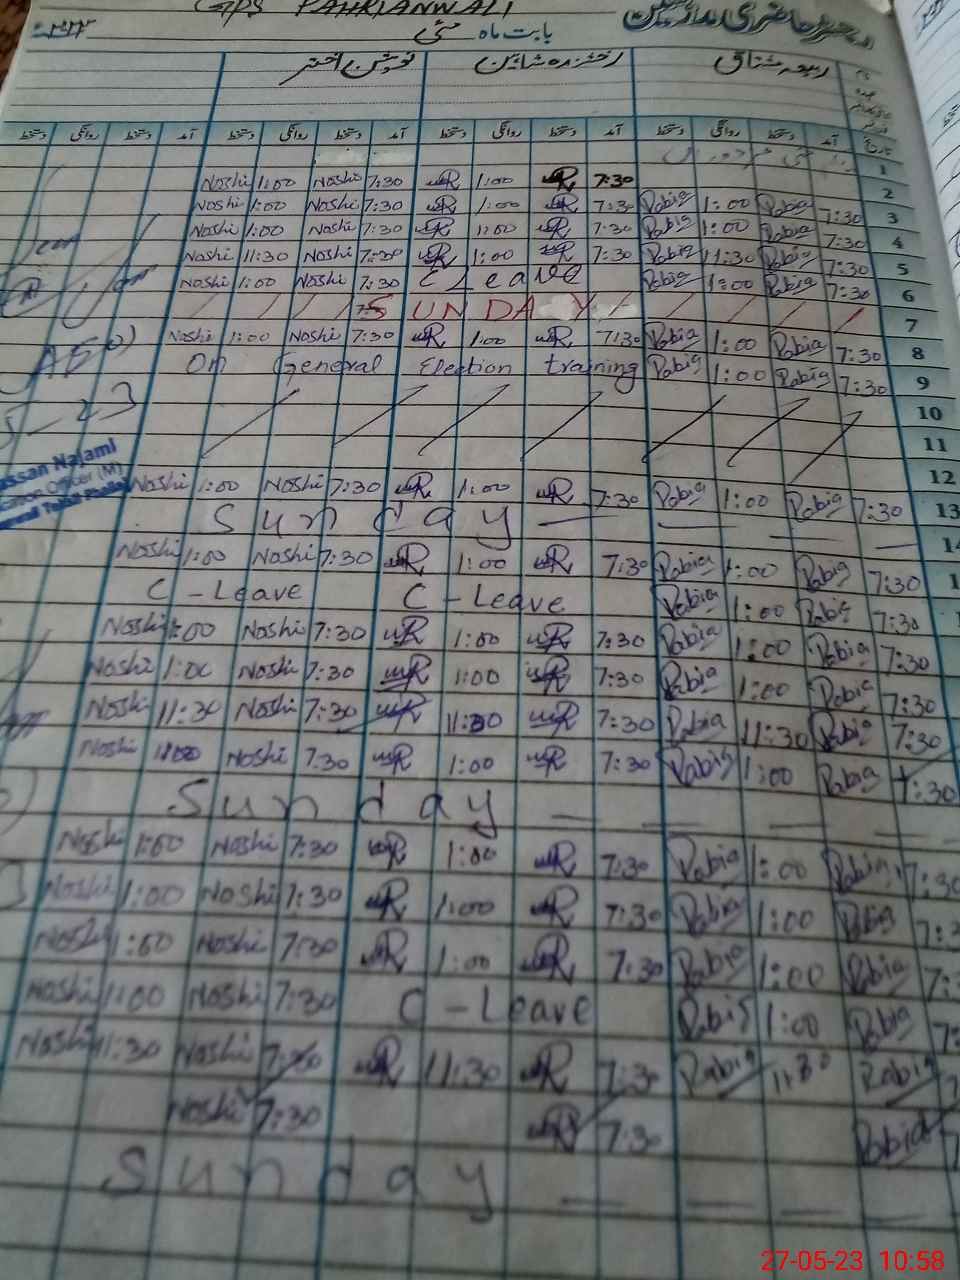 GPS PAHRIANWALI
رجسٹر حاضری مدارسین
بابت ماہ مئی ۲۰۲۳
نام ربیعہ مشتاق رخشندہ شاہین نوشین اختر
عہدہ
تاریخ آمد دستخط روانگی دستخط آمد دستخط روانگی دستخط آمد دستخط روانگی دستخط آمد دستخط روانگی دستخط
1
Noshi 1:00 Noshi 7:30 R 1:00 R 7:30 2
Noshi 1:00 Noshi 7:30 R 1:00 R 7:30 Rabia 1:00 Rabia 7:30 3
Noshi 1:00 Noshi 7:30 R 1:00 R 7:30 Rabia 1:00 Rabia 7:30 4
Noshi 11:30 Noshi 7:30 R 1:00 R 7:30 Rabia 11:30 Rabia 7:30 5
Noshi 1:00 Noshi 7:30 C Leave Rabia 1:00 Rabia 7:30 6
SUNDAY 7
Noshi 1:00 Noshi 7:30 R 1:00 R 7:30 Rabia 1:00 Rabia 7:30 8
On General Election training Rabia 1:00 Rabia 7:30 9
10
11
12
Noshi 1:00 Noshi 7:30 R 1:00 R 7:30 Rabia 1:00 Rabia 7:30 13
Sunday 14
Noshi 1:00 Noshi 7:30 R 1:00 R 7:30 Rabia 1:00 Rabia 7:30
C - Leave C - Leave Rabia 1:00 Rabia 7:30
Noshi 1:00 Noshi 7:30 R 1:00 R 7:30 Rabia 1:00 Rabia 7:30
Noshi 1:00 Noshi 7:30 R 1:00 R 7:30 Rabia 1:00 Rabia 7:30
Noshi 11:30 Noshi 7:30 R 11:30 R 7:30 Rabia 11:30 Rabia 7:30
Noshi 1:00 Noshi 7:30 R 1:00 R 7:30 Rabia 1:00 Rabia 7:30
Sunday
Noshi 1:00 Noshi 7:30 R 1:00 R 7:30 Rabia 1:00 Rabia 7:30
Noshi 1:00 Noshi 7:30 R 1:00 R 7:30 Rabia 1:00 Rabia
Noshi 1:00 Noshi 7:30 R 1:00 R 7:30 Rabia 1:00 Rabia
Noshi 1:00 Noshi 7:30 C - Leave Rabia 1:00 Rabia
Noshi 11:30 Noshi 7:30 R 11:30 R 7:30 Rabia 11:30 Rabia
Noshi 7:30 R 7:30 Rabia
Sunday
27-05-23 10:58